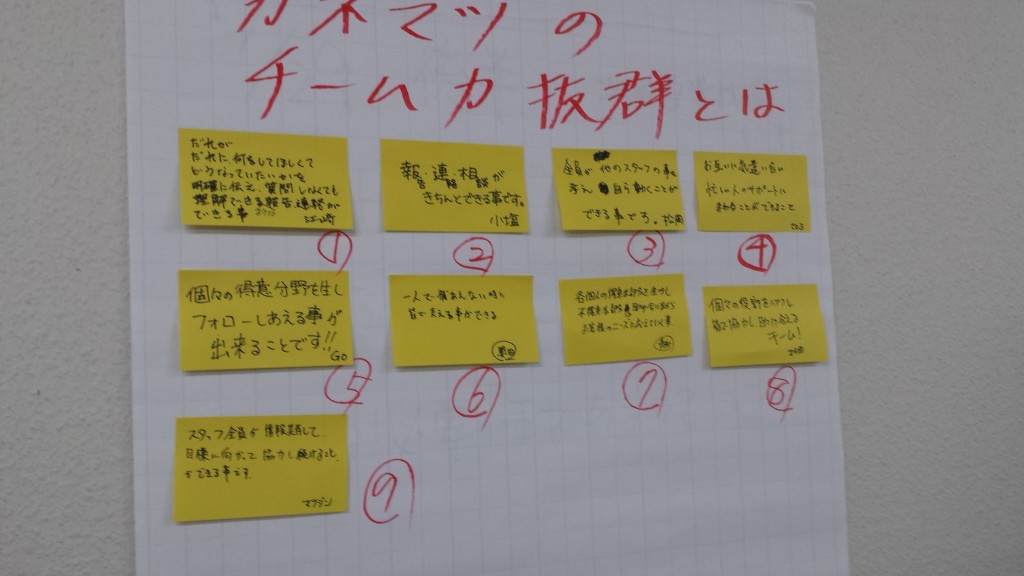 カネマツの
チームカ抜群とは
だれが
だれに何をしてほしくて
どうなっていたいかを
明確に伝え、質問しなくても
理解できる報告連絡が
できる事
江崎
①
報告・連絡・相談が
きちんとできる事です。
小塩
②
全員が他のスタッフの事を
考え自ら動くことが
できる事です。松岡
③
お互いに気遣い合い
忙しい人のサポートに
まわることができること
④
個々の得意分野を生し
フォローしあえる事が
出来ることです!!
GO
⑤
一人で 時に
皆で支える事ができる
⑥
各個人の得意
不得意
お客様のニーズに 事
⑦
個々の役割を
皆で協力し助け合える
チーム!
⑧
スタッフ全員が情報共有して、
目標に向かって協力し続けること
ができる事です。
マツジン
⑨